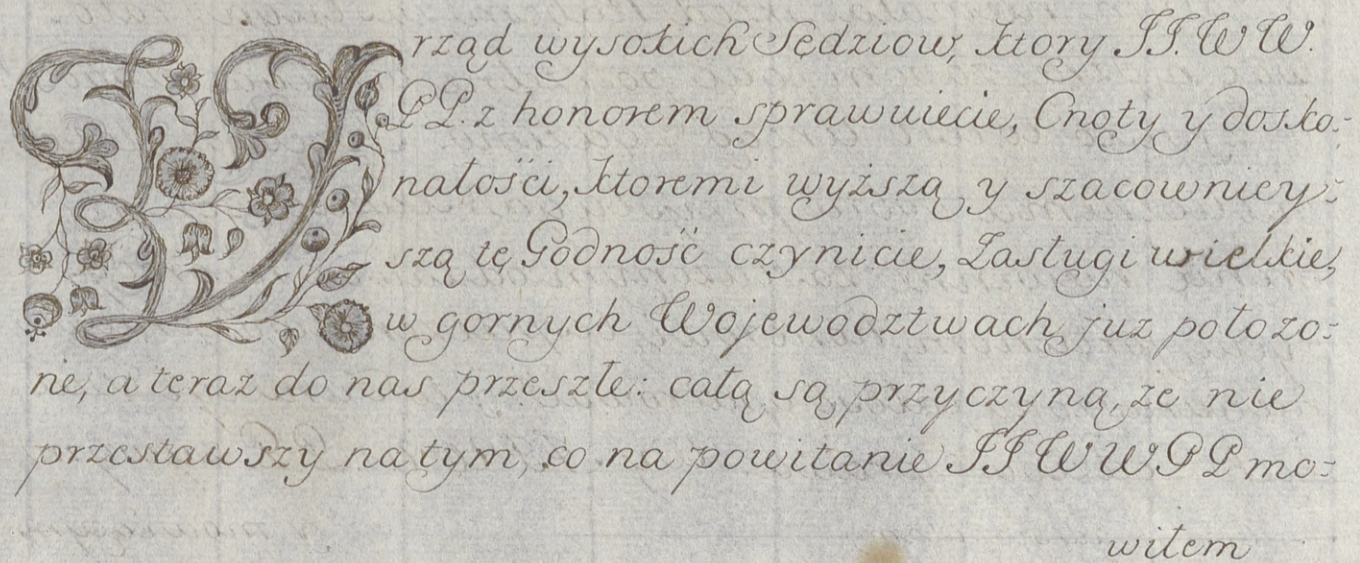 Urząd wysokich Sędziow, ktory JJ. WW.
PP. z honorem sprawuiecie, Cnoty y dosko:
nałości, ktoremi wyższą y szacowniey:
szą tę Godność czynicie, Zasługi wielkie,
w gornych Wojewodztwach juz położo:
ne, a teraz do nas przeszłe: całą są przyczyną, że nie
przestawszy na tym, co na powitanie JJ WW PP mo:
wiłem